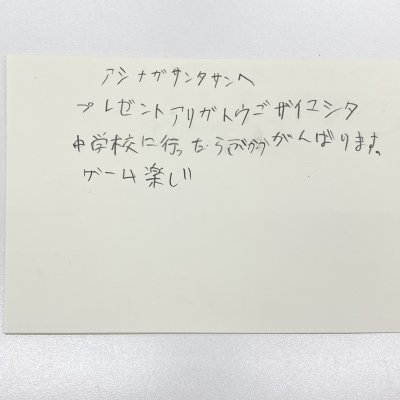 アシナガサンタサンヘ
プレゼントアリガトウゴザイマシタ
中学校に行ったら がんばります。
ゲーム楽しい